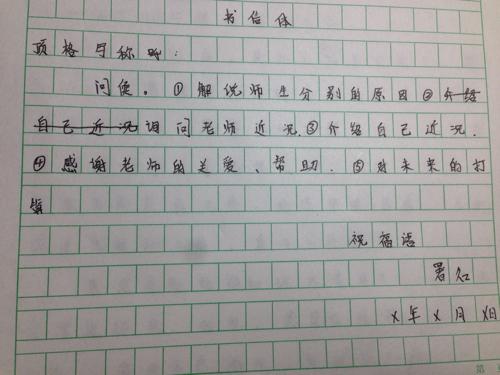 书信体
顶格写称呼:
问候。①解说师生分别的原因②介绍
自己近况询问老师近况.③介绍自己近况.
④感谢老师的关爱、帮助.⑤对未来的打
算
祝福语
署名
X年X月X日
第